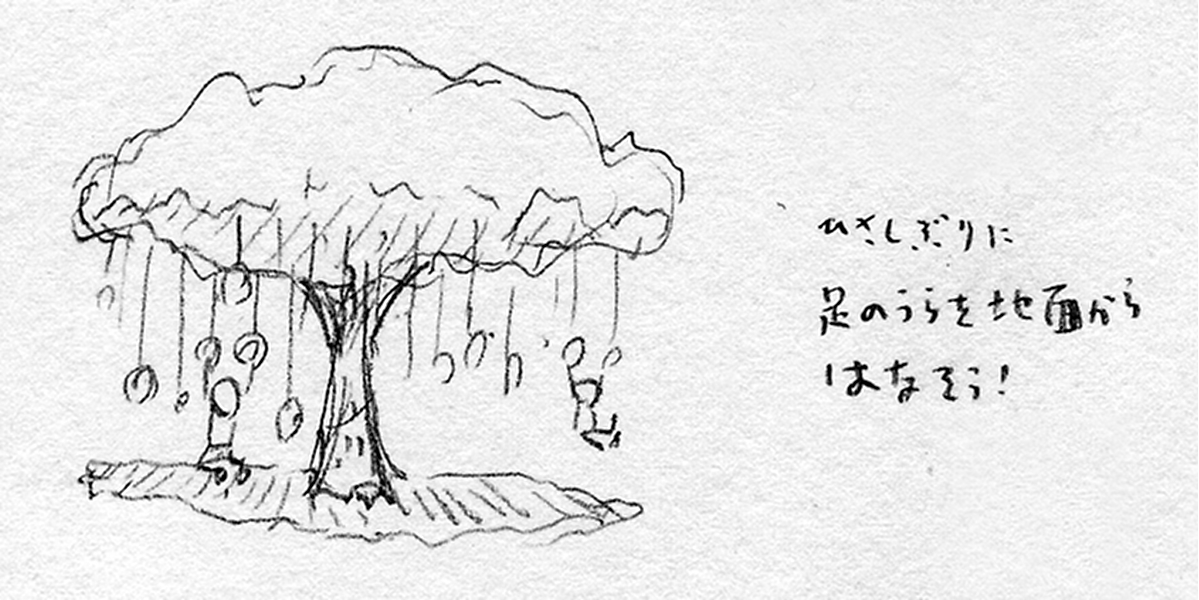 ひさしぶりに
足のうらを地面から
はなそう！